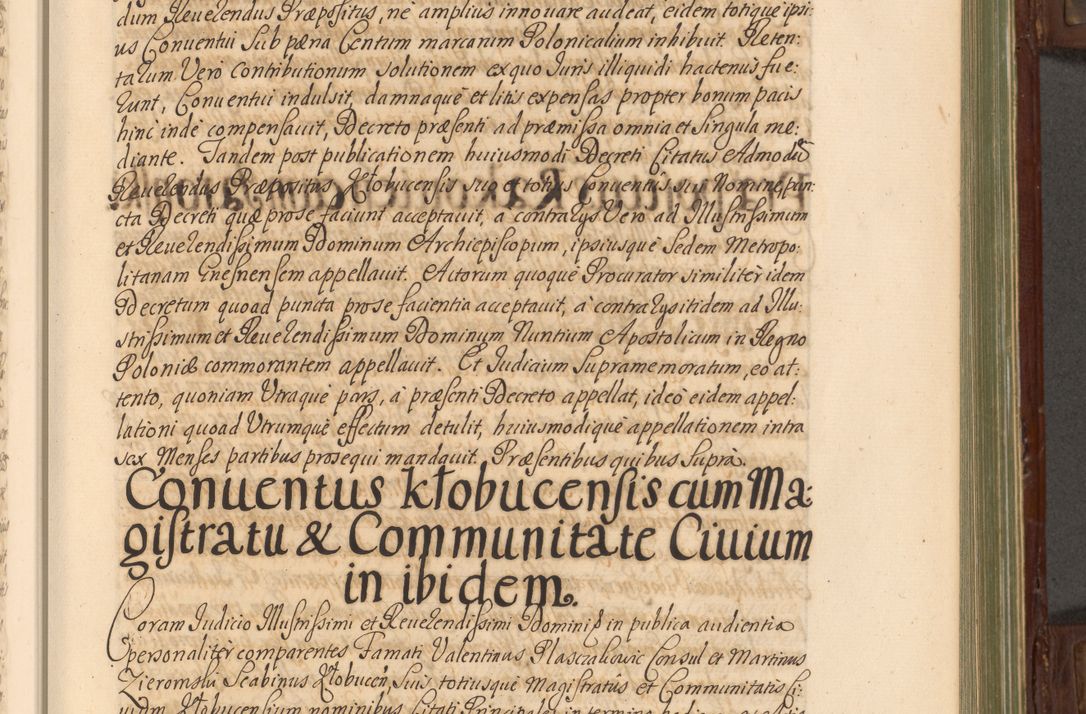 dum Reuerendus Præpositus, nè amplius innouare audeat, eidem totique ipsi:
us Conuentui sub pæna Centum marcarum Polonicalium inhibuit. Reten:
tarum Verò contributionum solutionem ex quo Iuris illiquidi hactenus fue:
runt, Conuentui indulsit, damnaquè et litis expensas propter bonum pacis
hinc indè compensauit, Decreto præsenti ad præmissa omnia et singula me:
diante. Tandem post publicationem huiusmodi Decreti Citatus Admodũ
Reuerendus Præpositus Kłobucensis suo et totius Conuentûs sui Nomine pun:
cta Decreti quæ pro se faciunt acceptauit, a contrarys Vero ad Illustrissimum
et Reuerendissimum Dominum Archiepiscopum, ipsiusquè Sedem Metropo:
litanam Gnesnensem appellauit. Actorum quoquè Procurator similitèr idem
Decretum quoad puncta pro se facientia acceptauit, à contrarys itidem ad Illu:
strissimum et Reuerendissimum Dominum Nuntium Apostolicum in Regno
Poloniæ commorantem appellauit. Et Iudicium supramemoratum, eò at:
tento, quoniam Utraquè pars, à præsenti Decreto appellat, ideò eidem appel:
lationi quoad Utrumquè effectum detulit, huiusmodiquè appellationem intra
sex Menses partibus prosequi mandauit. Præsentibus quibus suprà.
Conuentus kłobucensis cum Ma:
gistratu & Communitate Ciuium
in ibidem.
Coram Iudicio Illustrissimi et Reuerendissimi Domini in publica audientia
personalitèr comparentes Famati Valentinus Consul et Martinus
Scabinus Kłobuceñ, suis totiusquè Magistratûs et Communitatis Ci:
uium Kłobucensium nominibus Citati Principales in termino